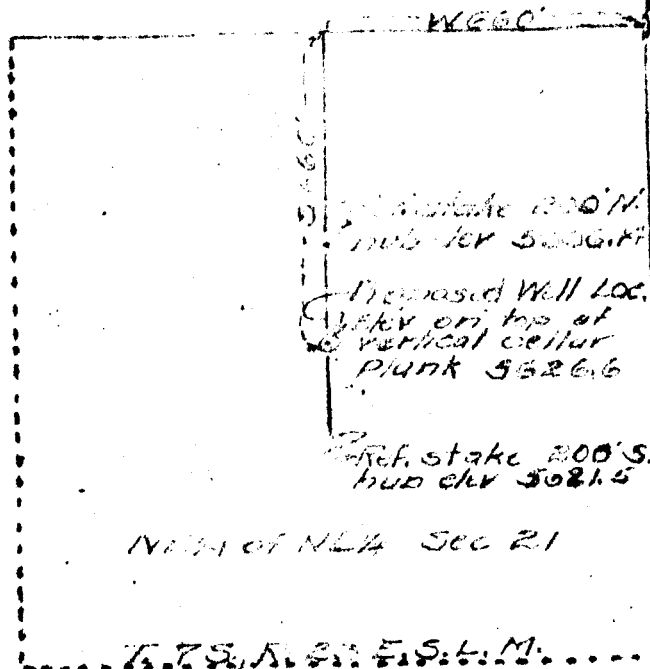 W660'
S660'
stake 200' N.
hub elev
Proposed Well Loc.
Elev on top of
vertical cellar
Plank 5626.6
Ref. stake 200' S.
hub elev 5621.5
of NE/4 Sec 21
T. 7 S., R. E. S. L. M.